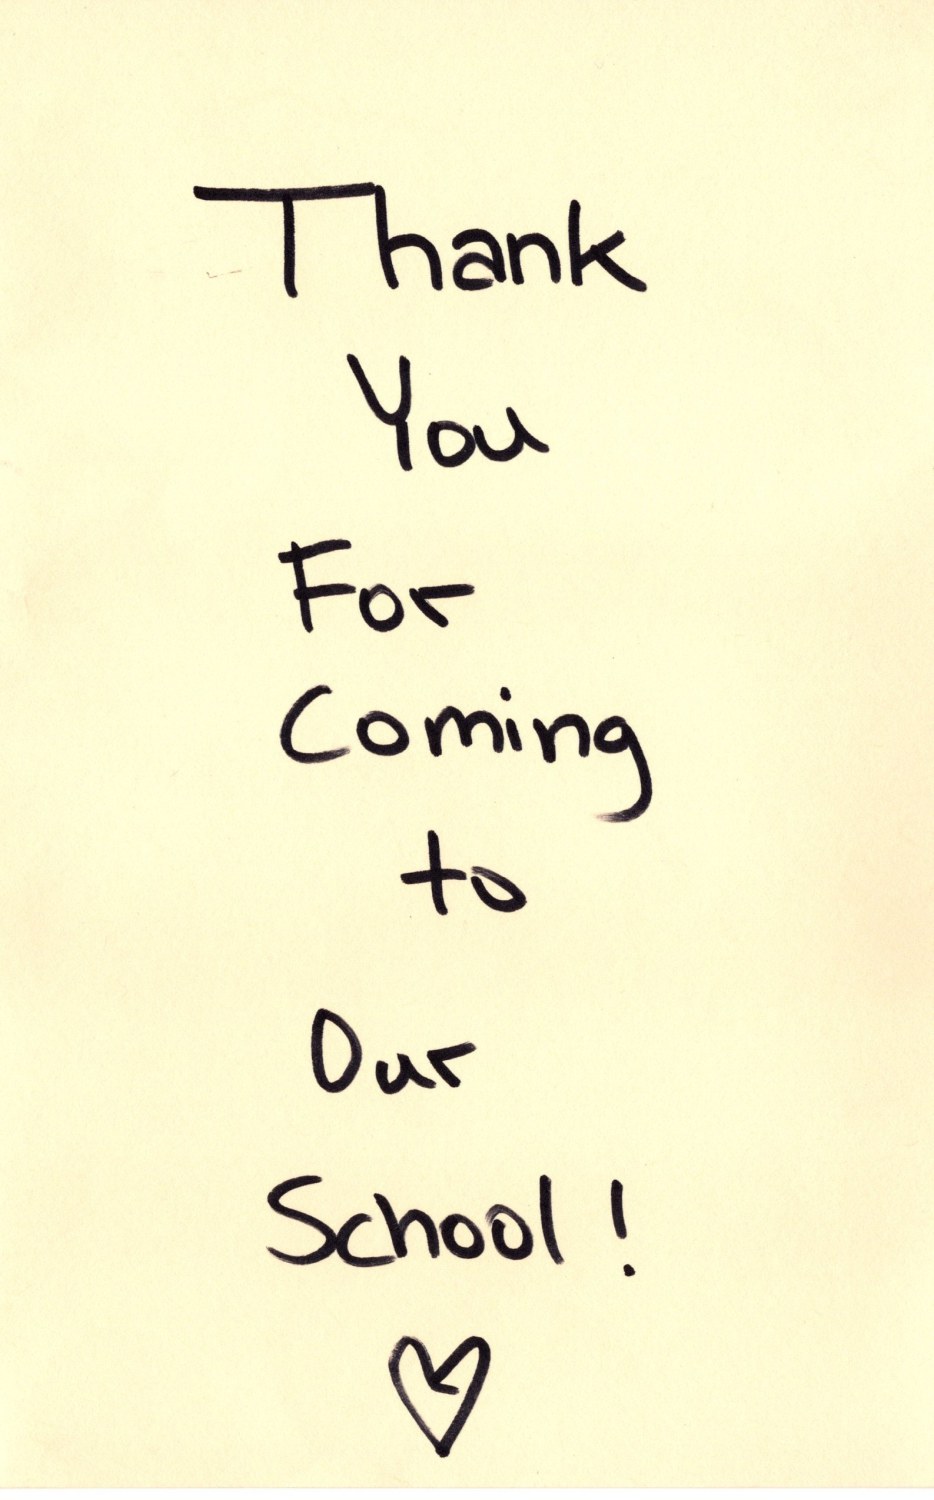 Thank
You
For
Coming
to
Our
School!